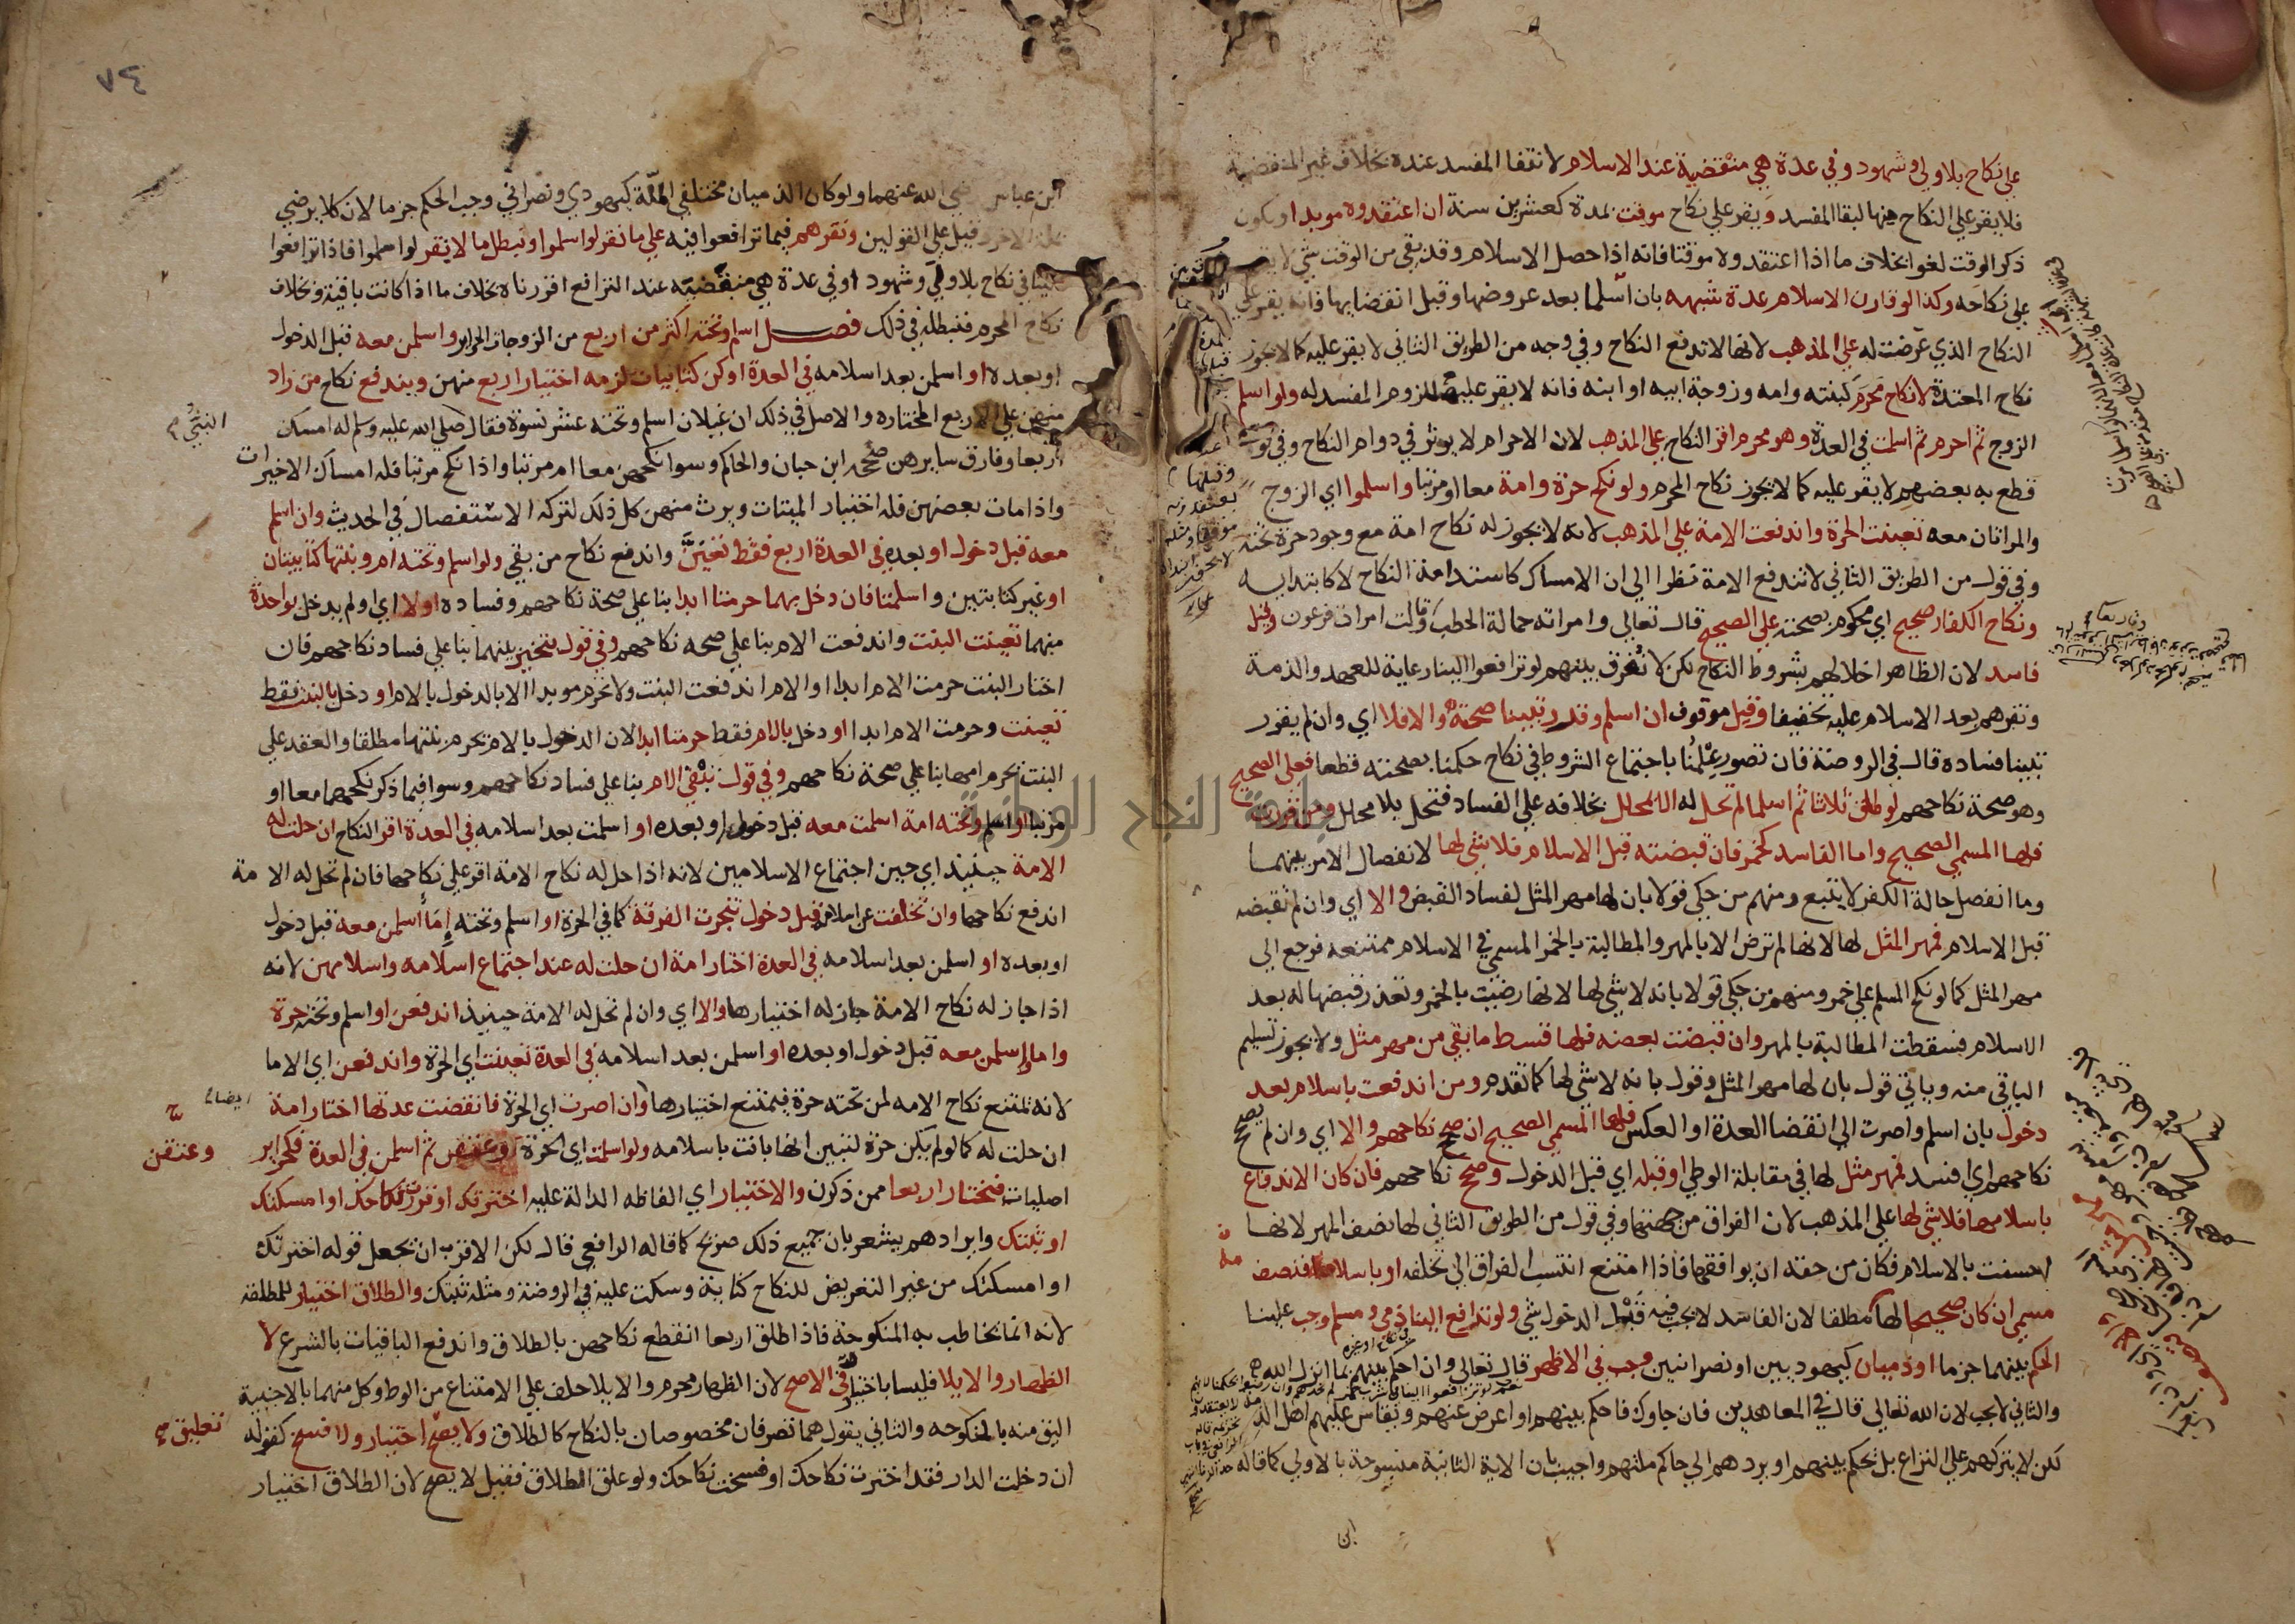 على نكاح بلا ولي وشهود وفي عدة هي منقضية عند الاسلام لانتفا المفسد عنده بخلاف غير المنقضية
فلا يقر على النكاح فيها لبقا المفسد ويقر على نكاح موقت بمدة كعشرين سنة ان اعتقدوه موبدا ويكون
ذكر الوقت لغوا بخلاف ما اذا اعتقدوه موقتا فانه اذا حصل الاسلام وقد بقي من الوقت شي لا يقر
على نكاحه وكذا لو قارن الاسلام عدة شبهه بان اسلما بعد عروضها وقبل انقضايها فانه يقر على
النكاح الذي عرضت له على المذهب لانها لا تدفع النكاح وفي وجه من الطريق الثاني لا يقر عليه كما لا يجوز
نكاح المعتدة لا نكاح محرم كبنته وامه وزوجة ابيه او ابنه فانه لا يقر عليه للزوم المفسد له ولو اسلم
الزوج ثم احرم ثم اسلمت في العدة وهو محرم اقر النكاح على المذهب لان الاحرام لا يوثر في دوام النكاح وفي قول
قطع به بعضهم لا يقر عليه كما لا يجوز نكاح المحرم ولو نكح حرة وامة معا او مرتبا واسلموا اي الزوج
والمراتان معه تعينت الحرة واندفعت الامة على المذهب لانه لا يجوز له نكاح امة مع وجود حرة تحته
وفي قول من الطريق الثاني لا تندفع الامة نظرا الى ان الامساك كاستدامة النكاح لا كابتدايه
ونكاح الكفار صحيح اي محكوم بصحته على الصحيح قال تعالى وامراته حمالة الحطب وقالت امرات فرعون وقيل
فاسد لان الظاهر اخلالهم بشروط النكاح لكن لا نفرق بينهم لو ترافعوا الينا رعاية للعهد والذمة
ونقرهم بعد الاسلام عليه تخفيفا وقيل موقوف ان اسلم وقدر تبينا صحته والا فلا اي وان لم يقرر
تبينا فساده قال في الروضة فان تصور علمنا باجتماع الشروط في نكاح حكمنا بصحته قطعا فعلى الصحيح
وهو صحة نكاحهم لو طلق ثلاثا ثم اسلما لم تحل له الا بمحلل بخلافه على الفساد فتحل بلا محلل ومن قررت
فلها المسمى الصحيح واما الفاسد كخمر فان قبضته قبل الاسلام فلا شي لها لانفصال الامر بينهما
وما انفصل حالة الكفر لا يتبع ومنهم من حكي قولا بان لها مهر المثل لفساد القبض والا اي وان لم تقبضه
قبل الاسلام فمهر المثل لها لانها لم ترض الا بالمهر والمطالبة بالخمر المسمى في الاسلام ممتنعه فرجع الى
مهر المثل كما لو نكح المسلم على خمر ومنهم من حكي قولا بانه لا شي لها لانها رضيت بالخمر وتعذر قبضها له بعد
الاسلام فسقطت المطالبة بالمهر وان قبضت بعضه فلها قسط ما بقي من مهر مثل ولا يجوز تسليم
الباقي منه وياتي قول بان لها مهر المثل وقول بانه لا شي لها كما تقدم ومن اندفعت باسلام بعد
دخول بان اسلم واصرت الى انقضا العدة او العكس فلها المسمى الصحيح ان صح نكاحهم والا اي وان لم يصح
نكاحهم اي افسد فمهر مثل لها في مقابلة الوطي او قبله اي قبل الدخول وصحح نكاحهم فان كان الاندفاع
باسلامها فلا شي لها على المذهب لان الفراق من جهتها وفي قول من الطريق الثاني لها نصف المهر لانها
احسنت بالاسلام فكان من حقه ان يوافقها فاذا امتنع انتسب الفراق الى تخلفه او باسلامه فنصف
مسمى ان كان صحيحا لها مطلقا لان الفاسد لا يجب فيه قبل الدخول شي ولو ترافع الينا ذمي ومسلم وجب علينا
الحكم بينهما جزما او ذميان كيهوديين او نصرانيين وجب في الاظهر قال تعالى وان احكم بينهم بما انزل الله
والثاني لا يجب لان الله تعالى قال في المعاهدين فان جاوك فاحكم بينهم او اعرض عنهم ويقاس عليهم اهل الذمة
لكن لا يتركهم على النزاع بل نحكم بينهم او يردهم الى حاكم ملتهم واجيب بان الاية الثانية منسوخة بالاولى كما قاله
ابن
٧٤
ابن عباس رضي الله عنهما ولو كان الذميان مختلفي الملة كيهودي ونصراني وجب الحكم جزما لان كلا لا يرضى
بملة الاخر وقيل على القولين ونقرهم فيما ترافعوا فيه على ما نقر لو اسلموا ونبطل ما لا نقر لو اسلموا فاذا ترافعوا
الينا في نكاح بلا ولي وشهود او في عدة هي منقضية عند الترافع اقررناه بخلاف ما اذا كانت باقية وبخلاف
نكاح المحرم فنبطله في ذلك فصل اسلم وتحته اكثر من اربع من الزوجات الحراير واسلمن معه قبل الدخول
او بعده او اسلمن بعد اسلامه في العدة او كن كتابيات لزمه اختيار اربع منهن ويندفع نكاح من زاد
منهن على الاربع المختاره والاصل في ذلك ان غيلان اسلم وتحته عشر نسوة فقال صلى الله عليه وسلم له امسك
اربعا وفارق سايرهن صححه ابن حبان والحاكم وسوا نكحهن معا ام مرتبا واذا نكح مرتبا فله امساك الاخيرات
واذا مات بعضهن فله اختيار الميتات ويرث منهن كل ذلك لتركه الاستفصال في الحديث وان اسلم
معه قبل دخول او بعده في العدة اربع فقط تعين واندفع نكاح من بقي ولو اسلم وتحته ام وبنتها كتابيتان
او غير كتابيتين واسلمتا فان دخل بهما حرمتا ابدا بنا على صحة نكاحهم وفساده او لا اي او لم يدخل بواحدة
منهما تعينت البنت واندفعت الام بنا على صحه نكاحهم وفي قول يتخير بينهما بنا على فساد نكاحهم فان
اختار البنت حرمت الام ابدا او الام اندفعت البنت ولا تحرم موبدا الا بالدخول بالام او دخل بالبنت فقط
تعينت وحرمت الام ابدا او دخل بالام فقط حرمتا ابدا لان الدخول بالام يحرم بنتها مطلقا والعقد على
البنت يحرم امها بنا على صحة نكاحهم وفي قول تبقى الام بنا على فساد نكاحهم وسوا فيما ذكر نكحهما معا او
مرتبا او اسلم وتحته امة اسلمت معه قبل دخول او بعده او اسلمت بعد اسلامه في العدة اقر النكاح ان حلت له
الامة حينيذ اي حين اجتماع الاسلامين لانه اذا حل له نكاح الامة اقر على نكاحها فان لم تحل له الامة
اندفع نكاحها وان تخلفت عن اسلامه قبل دخول تنجزت الفرقة كما في الحرة او اسلم وتحته إماً اسلمن معه قبل دخول
او بعده او اسلمن بعد اسلامه في العدة اختار امة ان حلت له عند اجتماع اسلامه واسلامهن لانه
اذا جاز له نكاح الامة جاز له اختيارها والا اي وان لم تحل له الامة حينيذ اندفعن او اسلم وتحته حرة
واما اسلمن معه قبل دخول او بعده او اسلمن بعد اسلامه في العدة تعينت اي الحرة واندفعن اي الاما
لانه يمتنع نكاح الامه لمن تحته حرة فيمتنع اختيارها وان اصرت اي الحرة فانقضت عدتها اختار امة
ان حلت له كما لو لم يكن حرة لتبين انها بانت باسلامه ولو اسلمت اي الحرة وعتقن ثم اسلمن في العدة فكحراير
وعتقن
اصليات فيختار اربعا ممن ذكرن والاختيار اي الفاظه الدالة عليه اخترتك او قررت نكاحك او امسكتك
او ثبتك وايرادهم يشعر بان جميع ذلك صريح كما قاله الرافعي قال لكن الاقرب ان يجعل قوله اخترتك
او امسكتك من غير التعريض للنكاح كناية وسكت عليه في الروضة ومثله ثبتك والطلاق اختيار للمطلقه
لانه انما يخاطب به المنكوحة فاذا طلق اربعا انقطع نكاحهن بالطلاق واندفع الباقيات بالشرع لا
الظهار والايلا فليسا باختيار في الاصح لان الظهار محرم والايلا حلف على الامتناع من الوطي وكل منهما بالاجنبية
اليق منه بالمنكوحه والثاني يقول هما تصرفان مخصوصان بالنكاح كالطلاق ولا يصح اختيار ولا فسخ كقوله
تعليق
ان دخلت الدار فقد اخترت نكاحك او فسخت نكاحك ولو علق الطلاق فقيل لا يصح لان الطلاق اختيار
جامعة النجاح الوطنية